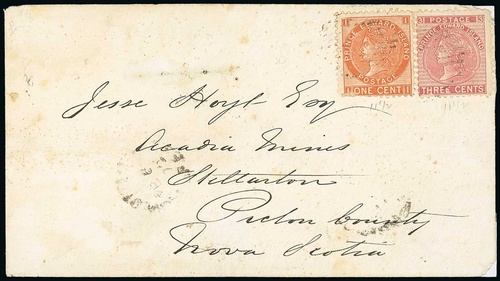 1 1
PRINCE EDWARD ISLAND
POSTAGE
ONE CENT
3 POSTAGE 3
PRINCE EDWARD ISLAND
THREE CENTS
11½ 11½
Jesse Hoyt Esq
Acadia Mines
Stellarton
Pictou County
Nova Scotia